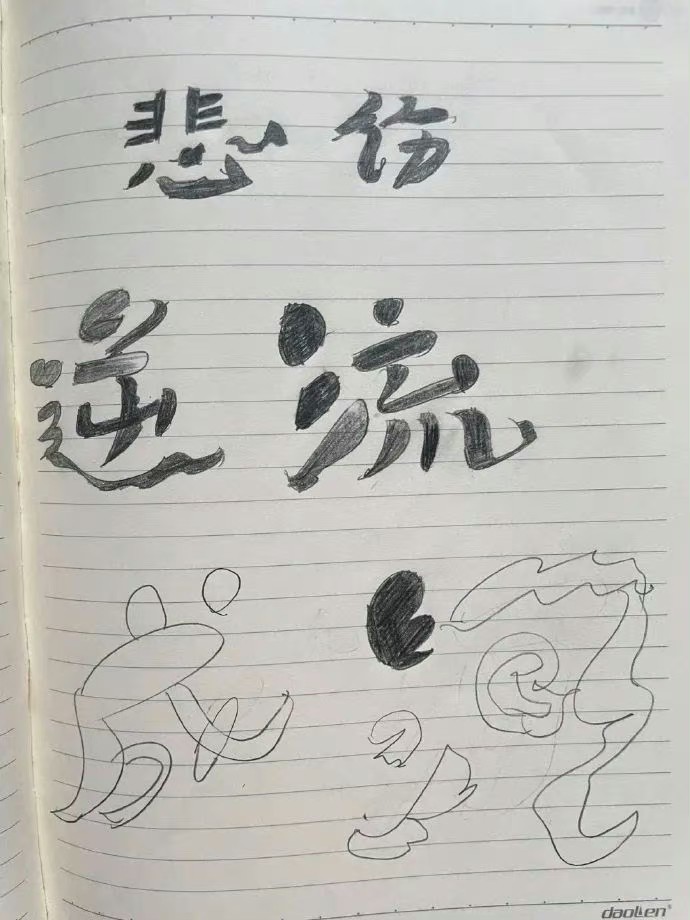 悲伤
逆流
成河